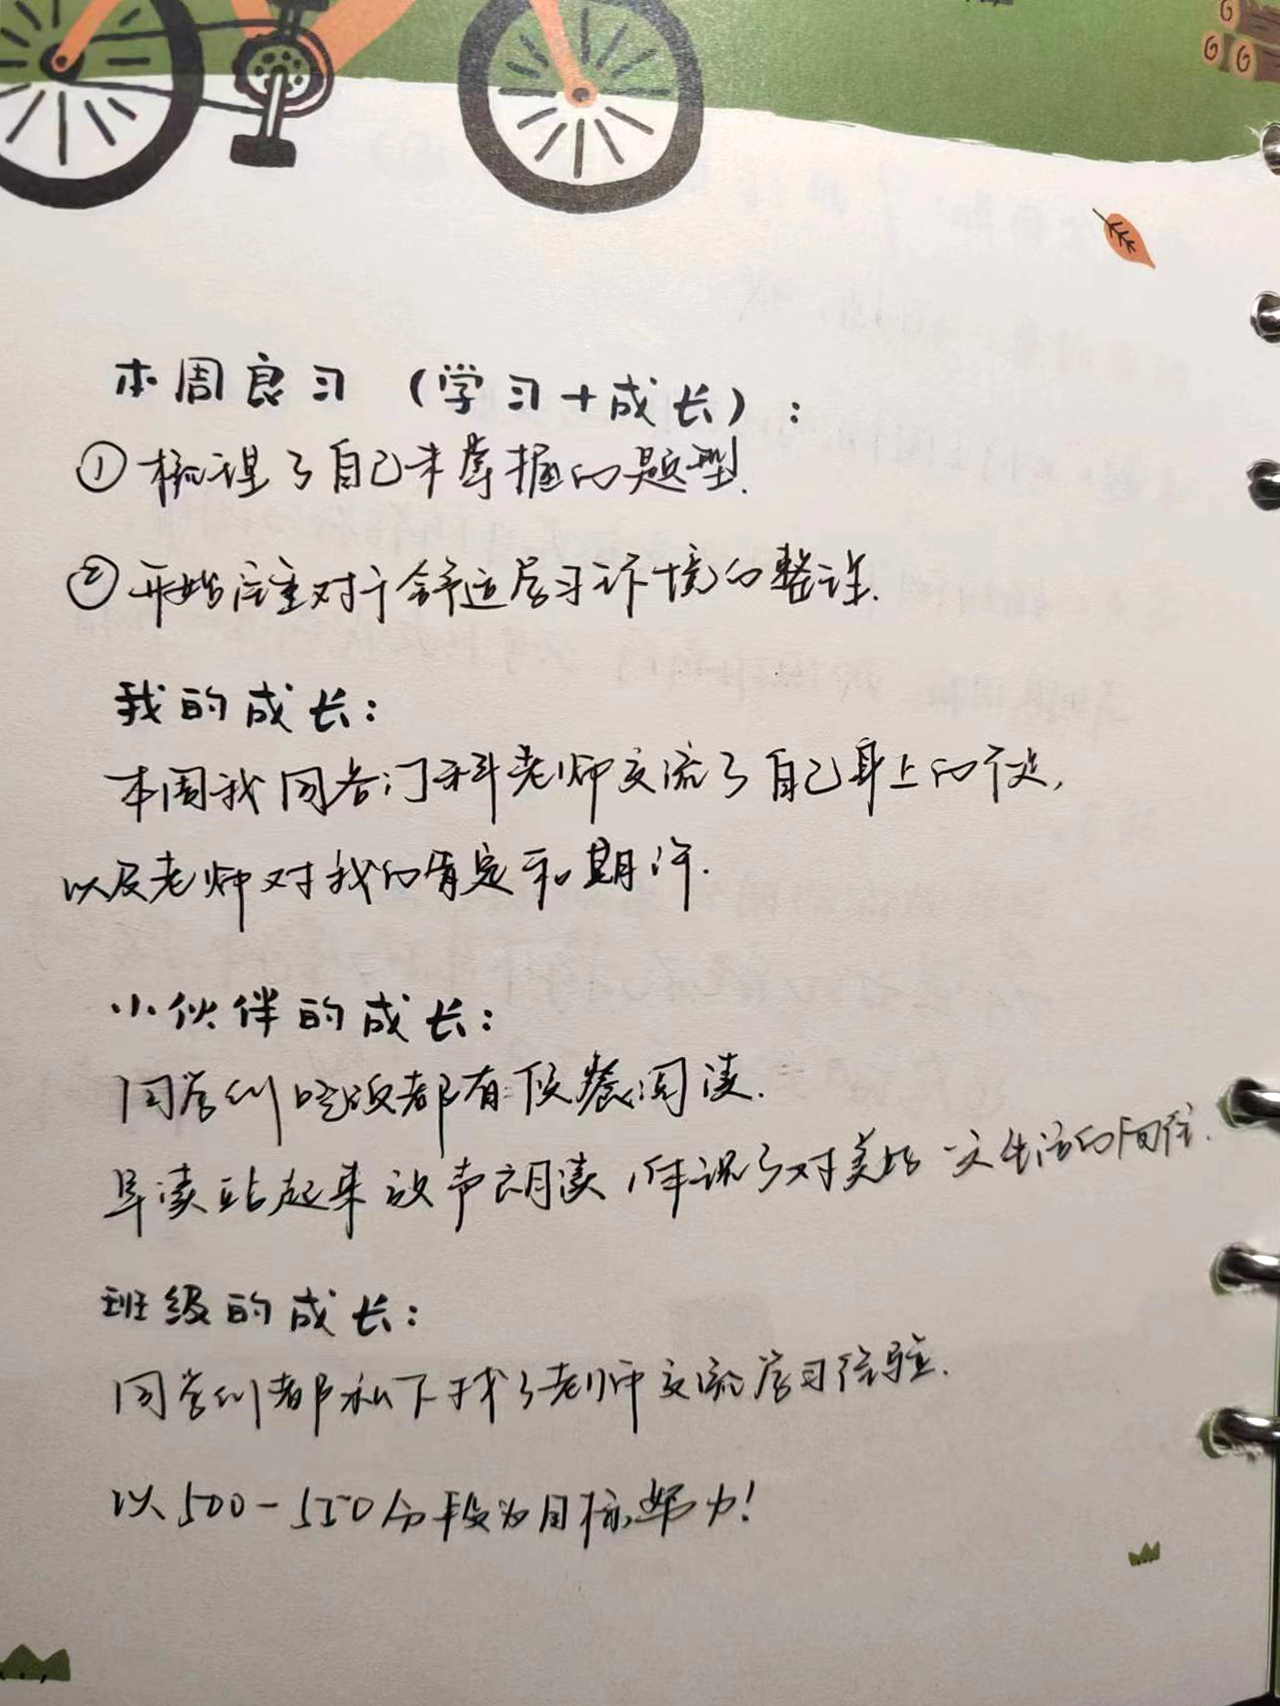 本周良习（学习+成长）:
①梳理了自己未掌握的题型.
②开始注重对于舒适学习环境的整理.
我的成长:
本周我同各门科老师交流了自己身上的不足,
以及老师对我的肯定和期许.
小伙伴的成长:
同学们吃饭都有候餐阅读.
早读站起来放声朗读,体现了对美好 生活的向往.
班级的成长:
同学们都私下找了老师交流学习经验.
以500-550分段为目标,努力!